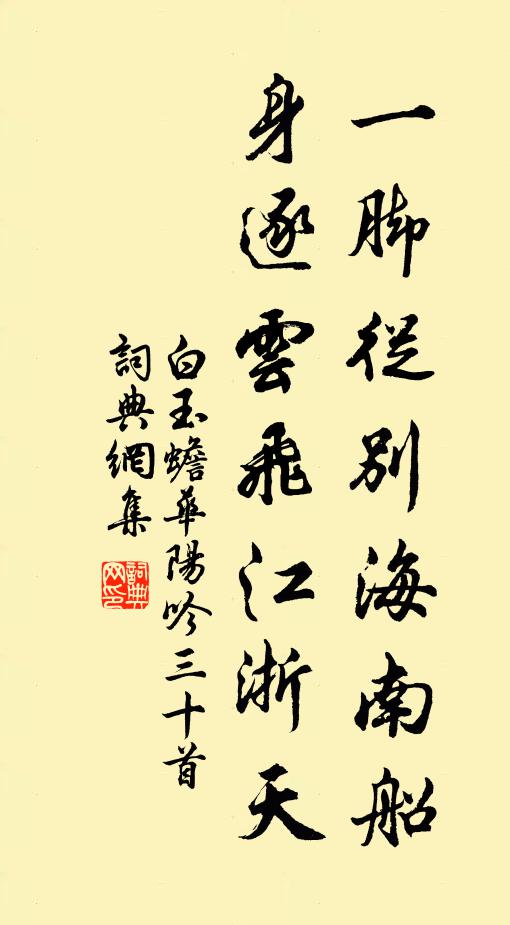 一脚從别海南船
身逐雲飛江浙天
白玉蟾華陽吟三十首
詞典網集
詞典網印